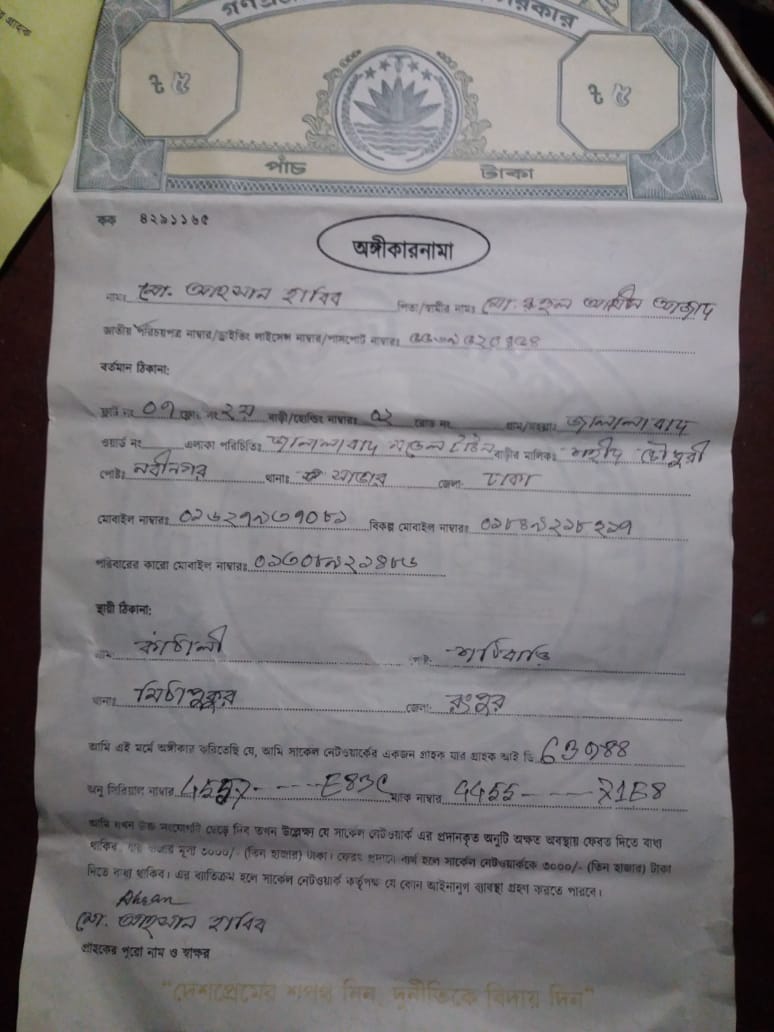 ৳ ৫
৳ ৫
পাঁচ
টাকা
কক ৪২৯১১৬৫
অঙ্গীকারনামা
নামঃ মো. আহসান হাবিব পিতা/স্বামীর নামঃ মো. রুহুল আমীন আজাদ
জাতীয় পরিচয়পত্র নাম্বার/ড্রাইভিং লাইসেন্স নাম্বার/পাসপোর্ট নাম্বারঃ
বর্তমান ঠিকানা:
ফ্লাট নং ০৭ ফ্লোর নং ২য় বাড়ী/হোল্ডিং নাম্বারঃ ০২ রোড নং গ্রাম/মহল্লাঃ জালালাবাদ
ওয়ার্ড নং এলাকা পরিচিতিঃ জালালাবাদ মডেল টাউন বাড়ীর মালিকঃ শহীদ চৌধুরী
পোষ্টঃ নবীনগর থানাঃ সাভার জেলা: ঢাকা
মোবাইল নাম্বারঃ বিকল্প মোবাইল নাম্বারঃ
পরিবারের কারো মোবাইল নাম্বারঃ
স্থায়ী ঠিকানা:
গ্রাম: কাঁঠালী পোষ্ট: শঠিবাড়ি
থানাঃ মিঠাপুকুর জেলা: রংপুর
আমি এই মর্মে অঙ্গীকার করিতেছি যে, আমি সার্কেল নেটওয়ার্কের একজন গ্রাহক যার গ্রাহক আই ডি
অনু সিরিয়াল নাম্বার ম্যাক নাম্বার
আমি যখন উক্ত সংযোগটি ছেড়ে দিব তখন উল্লেক্ষ্য যে সার্কেল নেটওয়ার্ক এর প্রদানকৃত অনুটি অক্ষত অবস্থায় ফেরত দিতে বাধ্য
থাকিব, যার বাজার মূল্য ৩০০০/- (তিন হাজার) টাকা। ফেরৎ প্রদানে ব্যর্থ হলে সার্কেল নেটওয়ার্ককে ৩০০০/- (তিন হাজার) টাকা
দিতে বাধ্য থাকিব। এর ব্যতিক্রম হলে সার্কেল নেটওয়ার্ক কর্তৃপক্ষ যে কোন আইনানুগ ব্যবস্থা গ্রহণ করতে পারবে।
Ahsan
মো. আহসান হাবিব
গ্রাহকের পুরো নাম ও স্বাক্ষর
"দেশপ্রেমের শপথ নিন, দুর্নীতিকে বিদায় দিন"